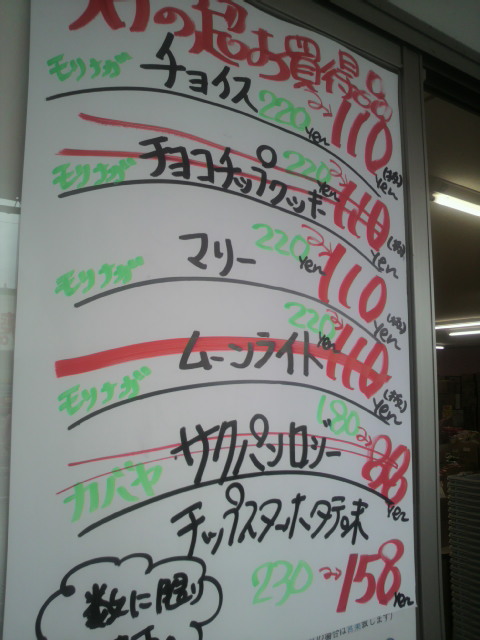 の超お買得品
モリナガ チョイス 220yen→110yen(税抜)
モリナガ チョコチップクッキー 220yen→110yen(税抜)
モリナガ マリー 220yen→110yen(税抜)
モリナガ ムーンライト 220→110yen(税抜)
カバヤ サクパンロジー 180→88yen
チップスターホタテ味
230→158yen
数に限り